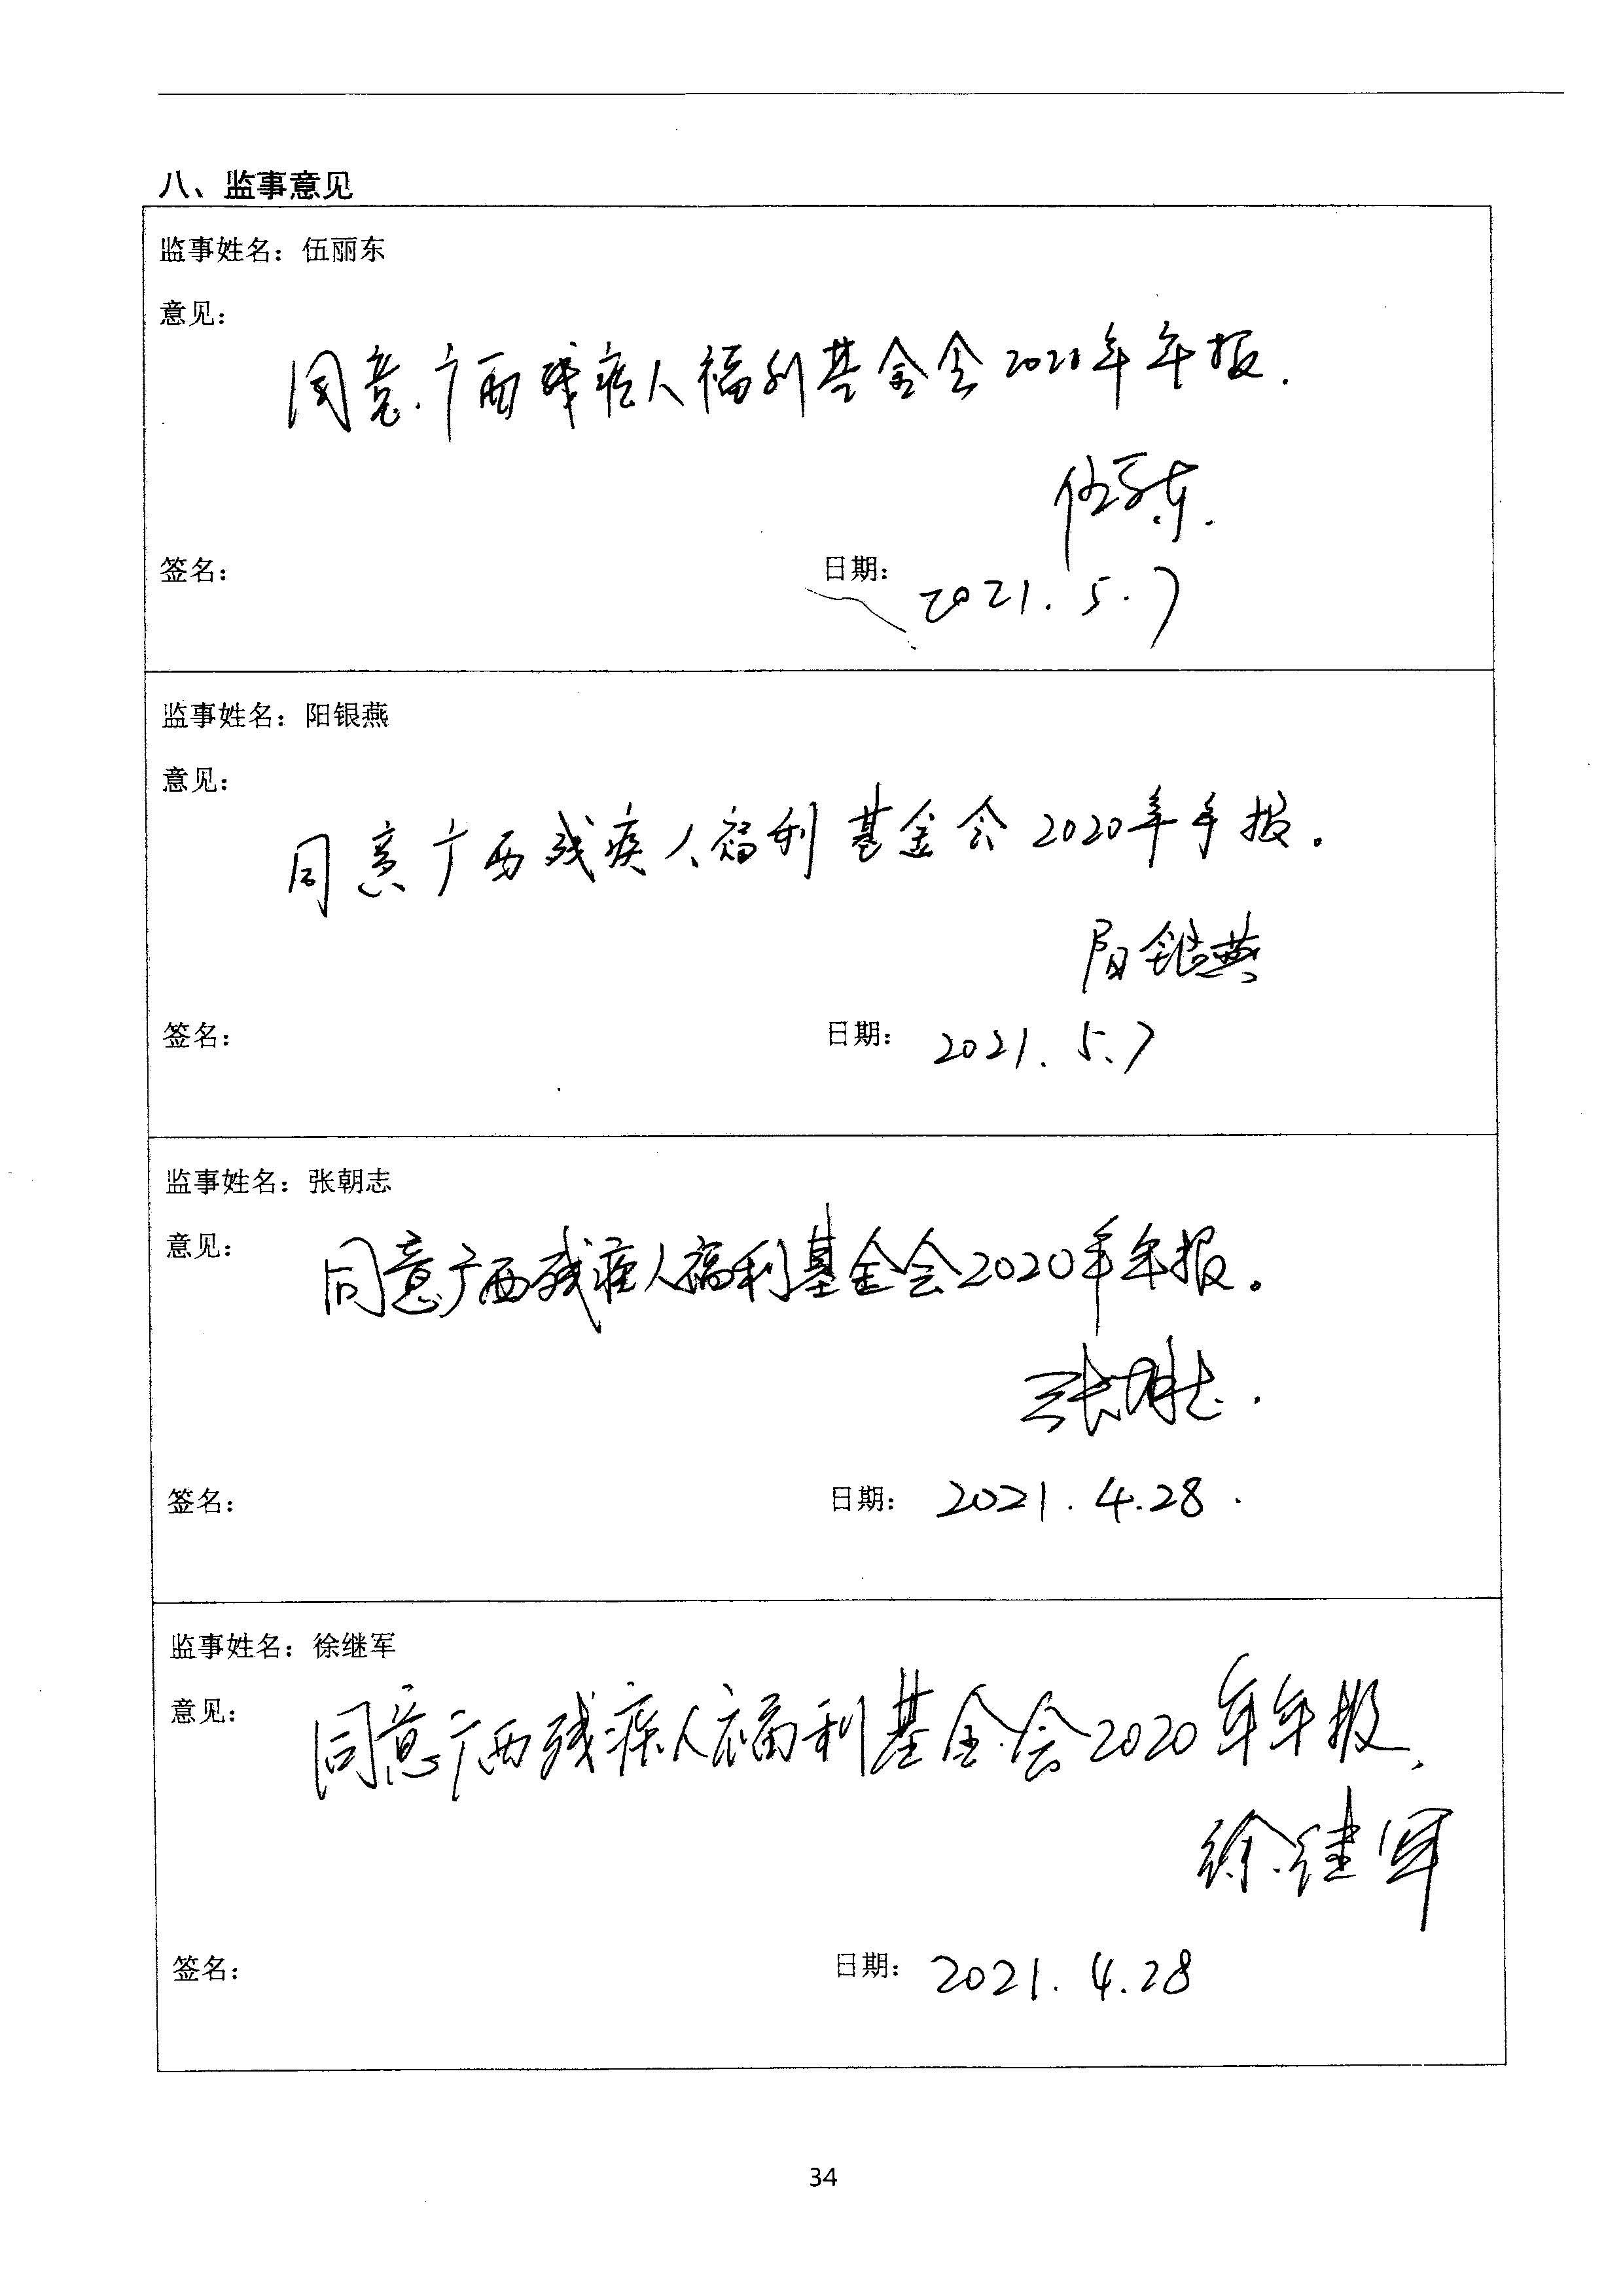 八、监事意见
监事姓名：伍丽东
意见：
同意广西残疾人福利基金会2020年年报.
伍丽东.
签名：
日期：2021.5.7
监事姓名：阳银燕
意见：
同意广西残疾人福利基金会2020年年报.
阳银燕
签名：
日期：2021.5.7
监事姓名：张朝志
意见：同意广西残疾人福利基金会2020年年报。
张朝志.
签名：
日期：2021.4.28.
监事姓名：徐继军
意见：同意广西残疾人福利基金会2020年年报.
徐继军
签名：
日期：2021.4.28
34